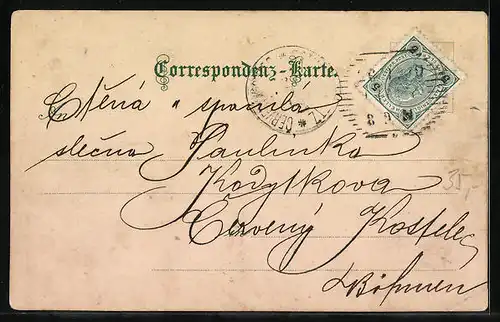 Correspondenz-Karte.
Ctěná a spanilá
slečna
Paulinka
Kodytkova
Červený Kostelec
Böhmen
35,-